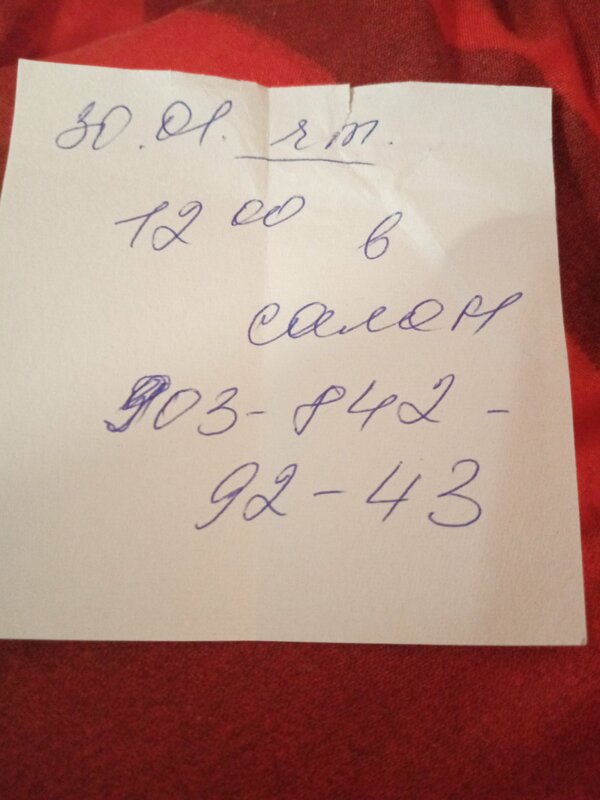 30.01. чт.
12 00 в
салон
903-842-
92-43